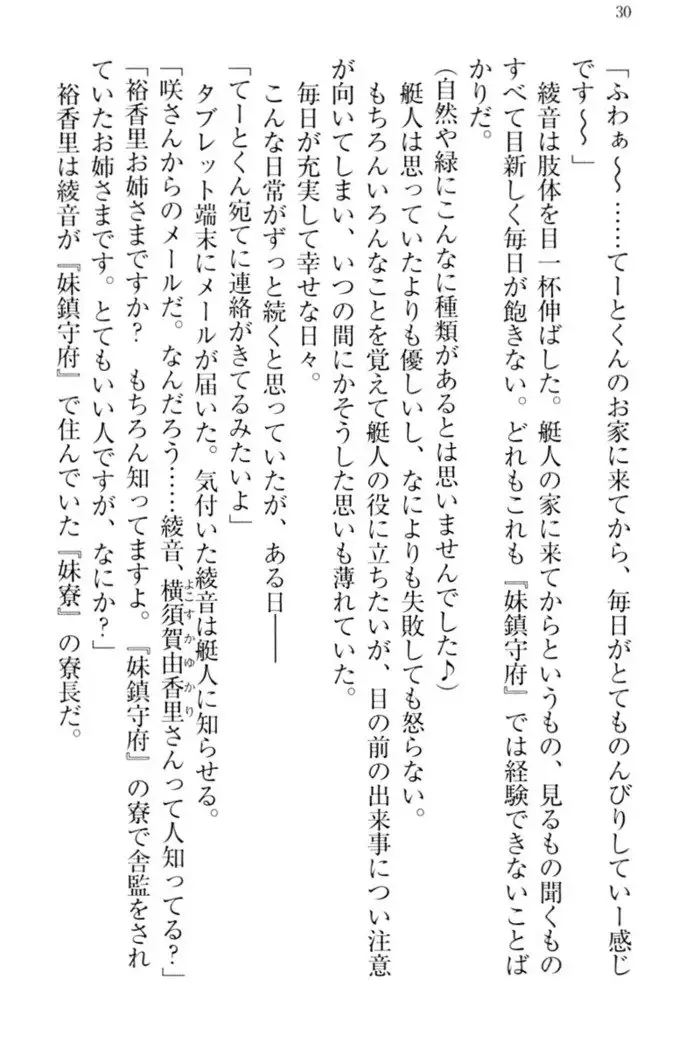 30
「ふわぁ〜〜……てーとくんのお家に来てから、毎日がとてものんびりしていー感じ
です〜〜」
綾音は肢体を目一杯伸ばした。艇人の家に来てからというもの、見るもの聞くもの
すべて目新しく毎日が飽きない。どれもこれも『妹鎮守府』では経験できないことば
かりだ。
(自然や緑にこんなに種類があるとは思いませんでした♪)
艇人は思っていたよりも優しいし、なによりも失敗しても怒らない。
もちろんいろんなことを覚えて艇人の役に立ちたいが、目の前の出来事につい注意
が向いてしまい、いつの間にかそうした思いも薄れていた。
毎日が充実して幸せな日々。
こんな日常がずっと続くと思っていたが、ある日――
「てーとくん宛てに連絡がきてるみたいよ」
タブレット端末にメールが届いた。気付いた綾音は艇人に知らせる。
「咲さんからのメールだ。なんだろう……綾音、横須賀由香里さんって人知ってる?」
よこすかゆかり
「裕香里お姉さまですか? もちろん知ってますよ。『妹鎮守府』の寮で舎監をされ
ていたお姉さまです。とてもいい人ですが、なにか?」
裕香里は綾音が『妹鎮守府』で住んでいた『妹寮』の寮長だ。